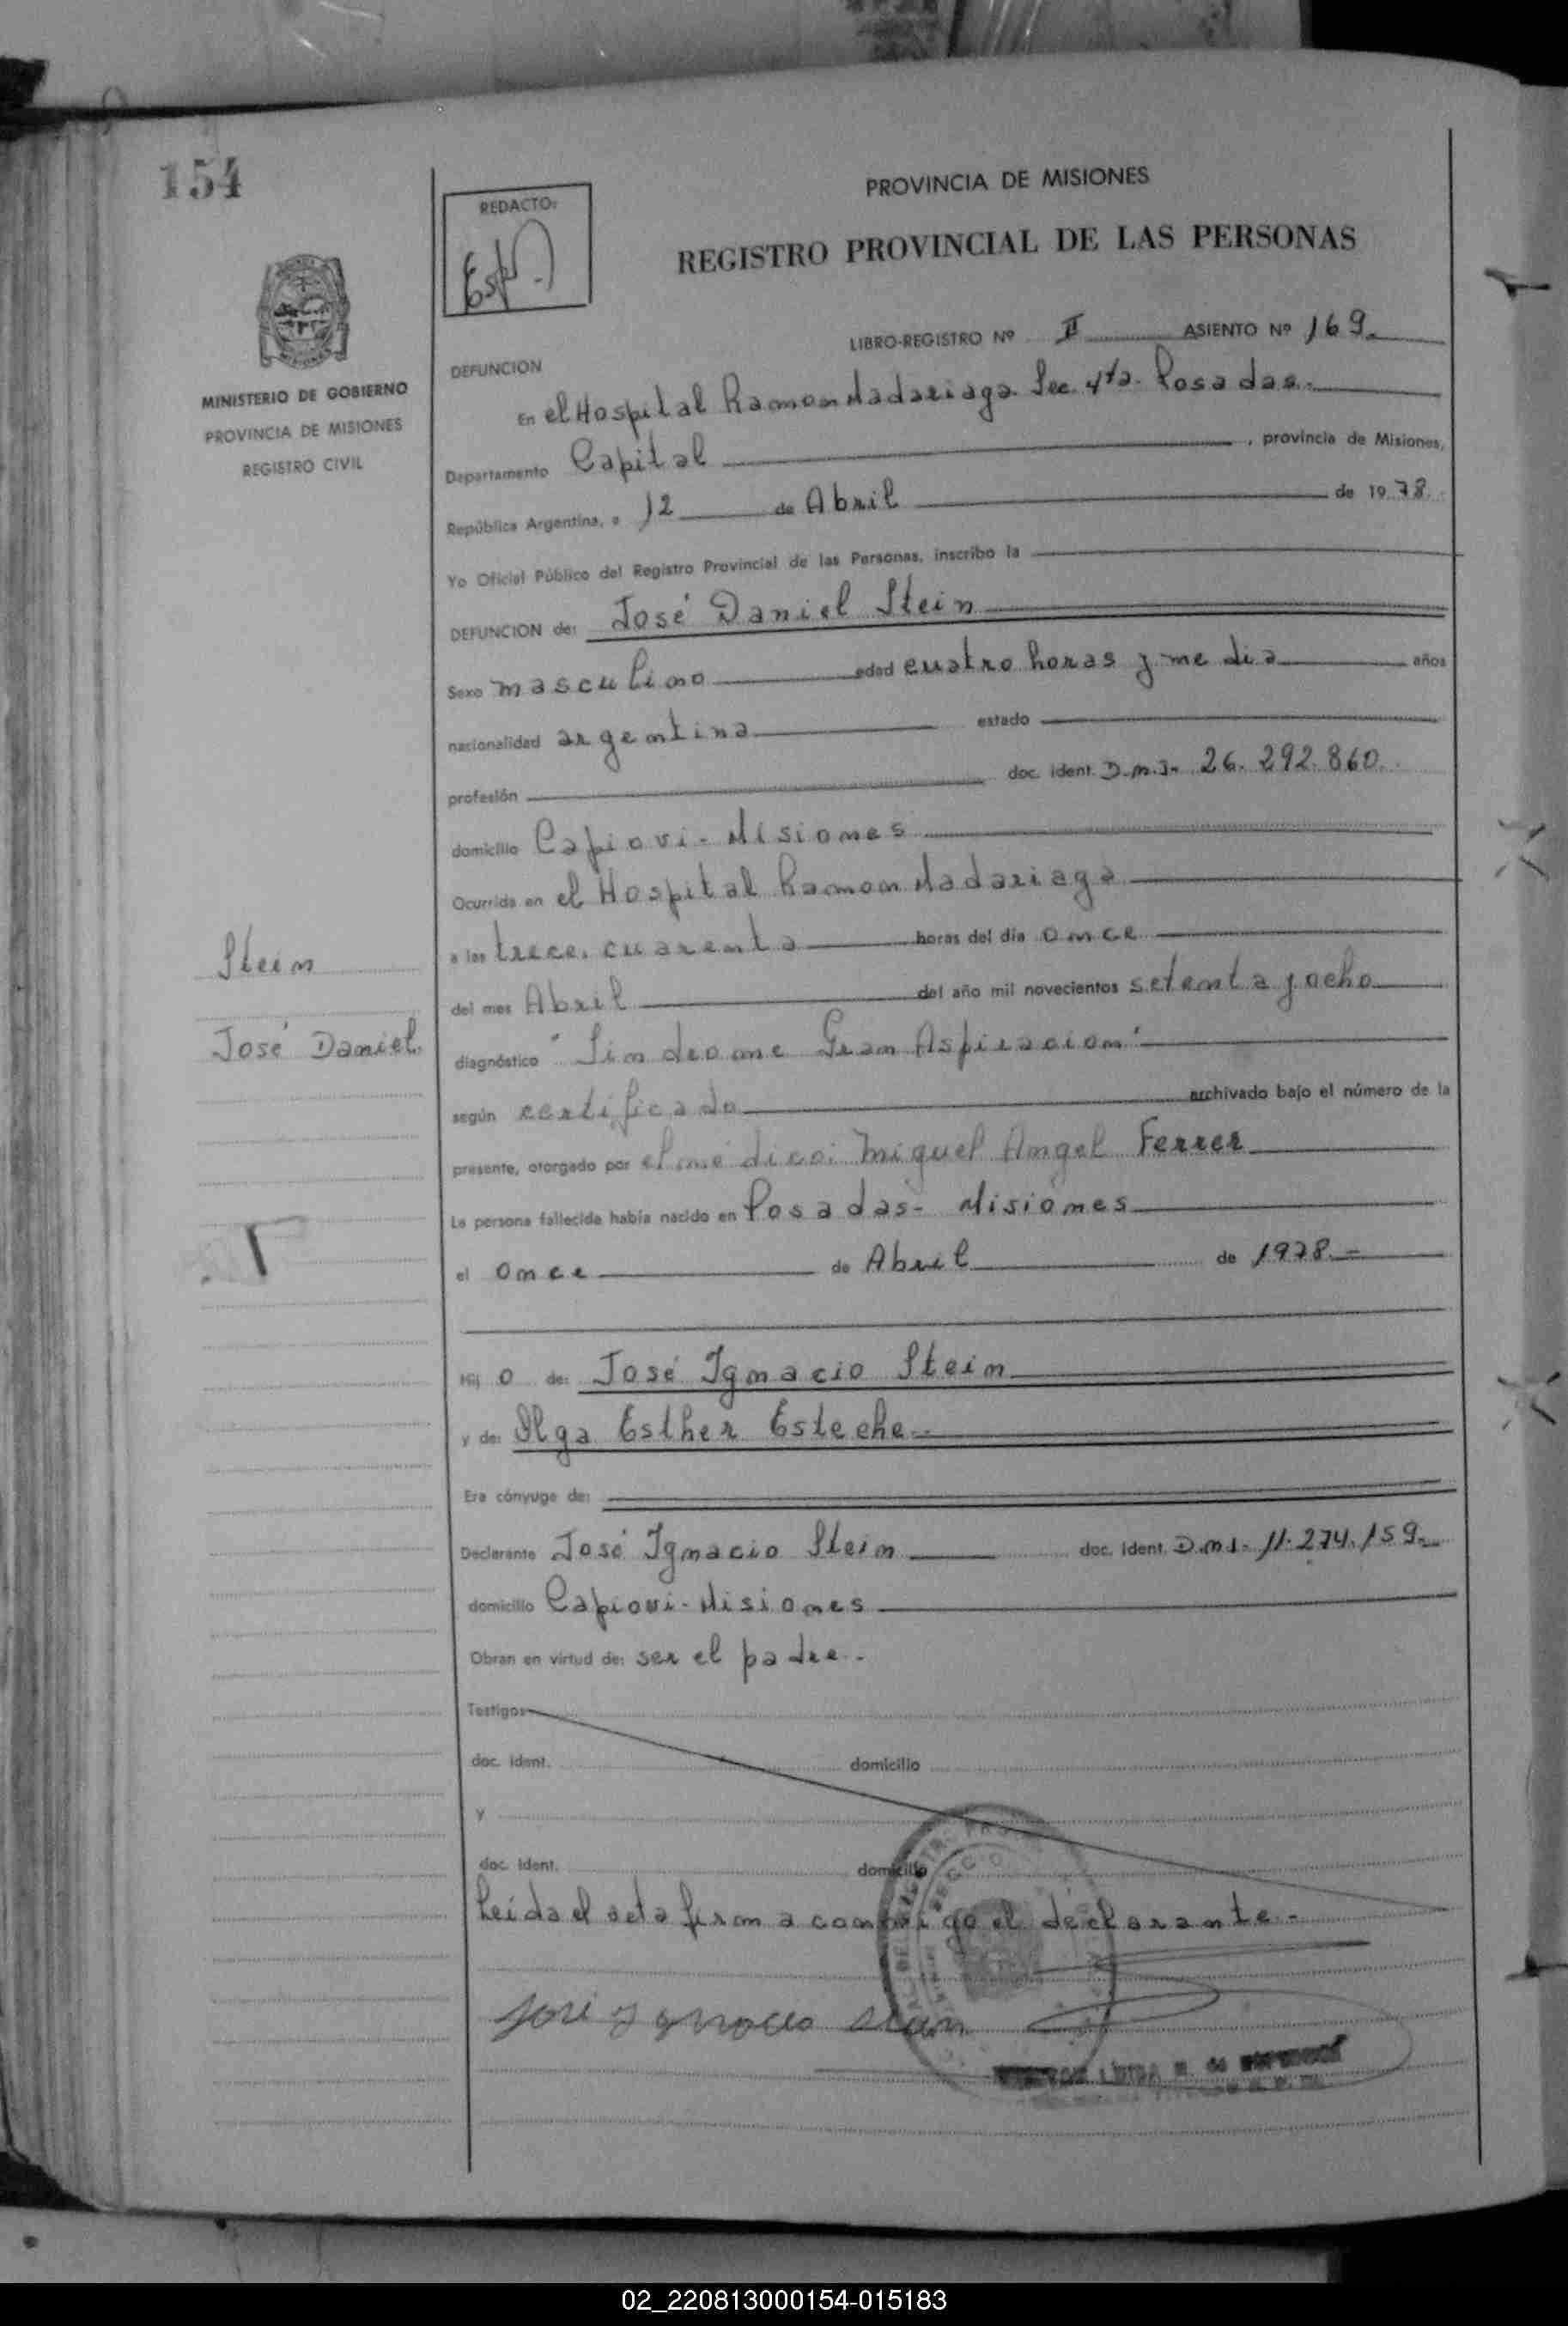 154
PROVINCIA DE MISIONES
REDACTO:
REGISTRO PROVINCIAL DE LAS PERSONAS
LIBRO-REGISTRO Nº II ASIENTO Nº 169.
MINISTERIO DE GOBIERNO
PROVINCIA DE MISIONES
REGISTRO CIVIL
DEFUNCION
En el Hospital Ramon Madariaga Sec. 4ta. Posadas.
Departamento Capital, provincia de Misiones,
República Argentina, a 12 de Abril de 1978.
Yo Oficial Público del Registro Provincial de las Personas, inscribo la
DEFUNCION de: José Daniel Stein
Sexo masculino edad cuatro horas y media años
nacionalidad argentina estado
profesión doc. ident. D.n.i- 26.292.860.
domicilio Capiovi - Misiones
Ocurrida en el Hospital Ramon Madariaga
a las trece, cuarenta horas del día once
del mes Abril del año mil novecientos setenta y ocho
diagnóstico "Sindrome Gran Aspiracion"
según certificado archivado bajo el número de la
presente, otorgado por el médico: Miguel Angel Ferrer
La persona fallecida había nacido en Posadas- Misiones
el once de Abril de 1978.-
Stein
José Daniel.
Hij o de: José Ignacio Stein
y de: Olga Esther Esteche.-
Era cónyuge de:
Declarante José Ignacio Stein doc. ident. D.n.i- 11.274.159.
domicilio Capiovi - Misiones
Obran en virtud de: ser el padre.-
Testigos
doc. ident. domicilio
y
doc. ident. domicilio
Leida el acta firma conmigo el declarante.-
José Ignacio Stein
02_220813000154-015183